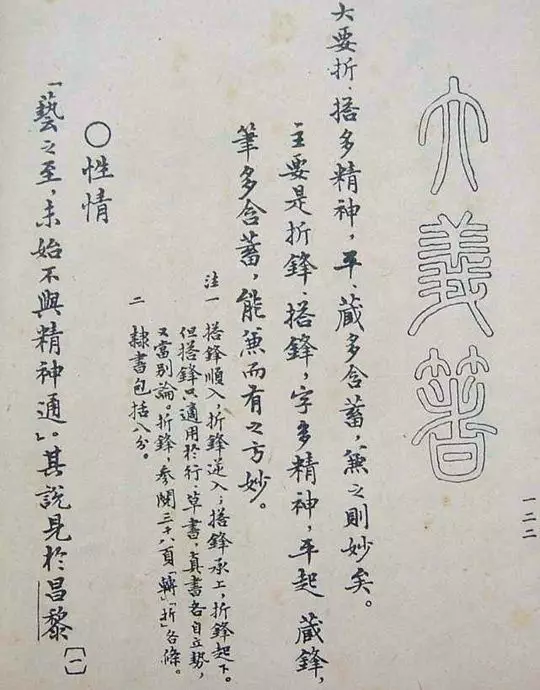 一二二
大義箸
大要折、搭多精神，平、藏多含蓄，兼之則妙矣。
主要是折鋒、搭鋒，字多精神，平起 藏鋒，
筆多含蓄，能兼而有之方妙。
注一 搭鋒順入，折鋒逆入；搭鋒承上，折鋒起下。
但搭鋒只適用於行、草書，真書各自立勢，
又當別論。折鋒參閱三十八頁「轉」「折」各條。
二 隸書包括八分。
〇性情
「藝之至，未始不與精神通」。其說見於昌黎〔一〕